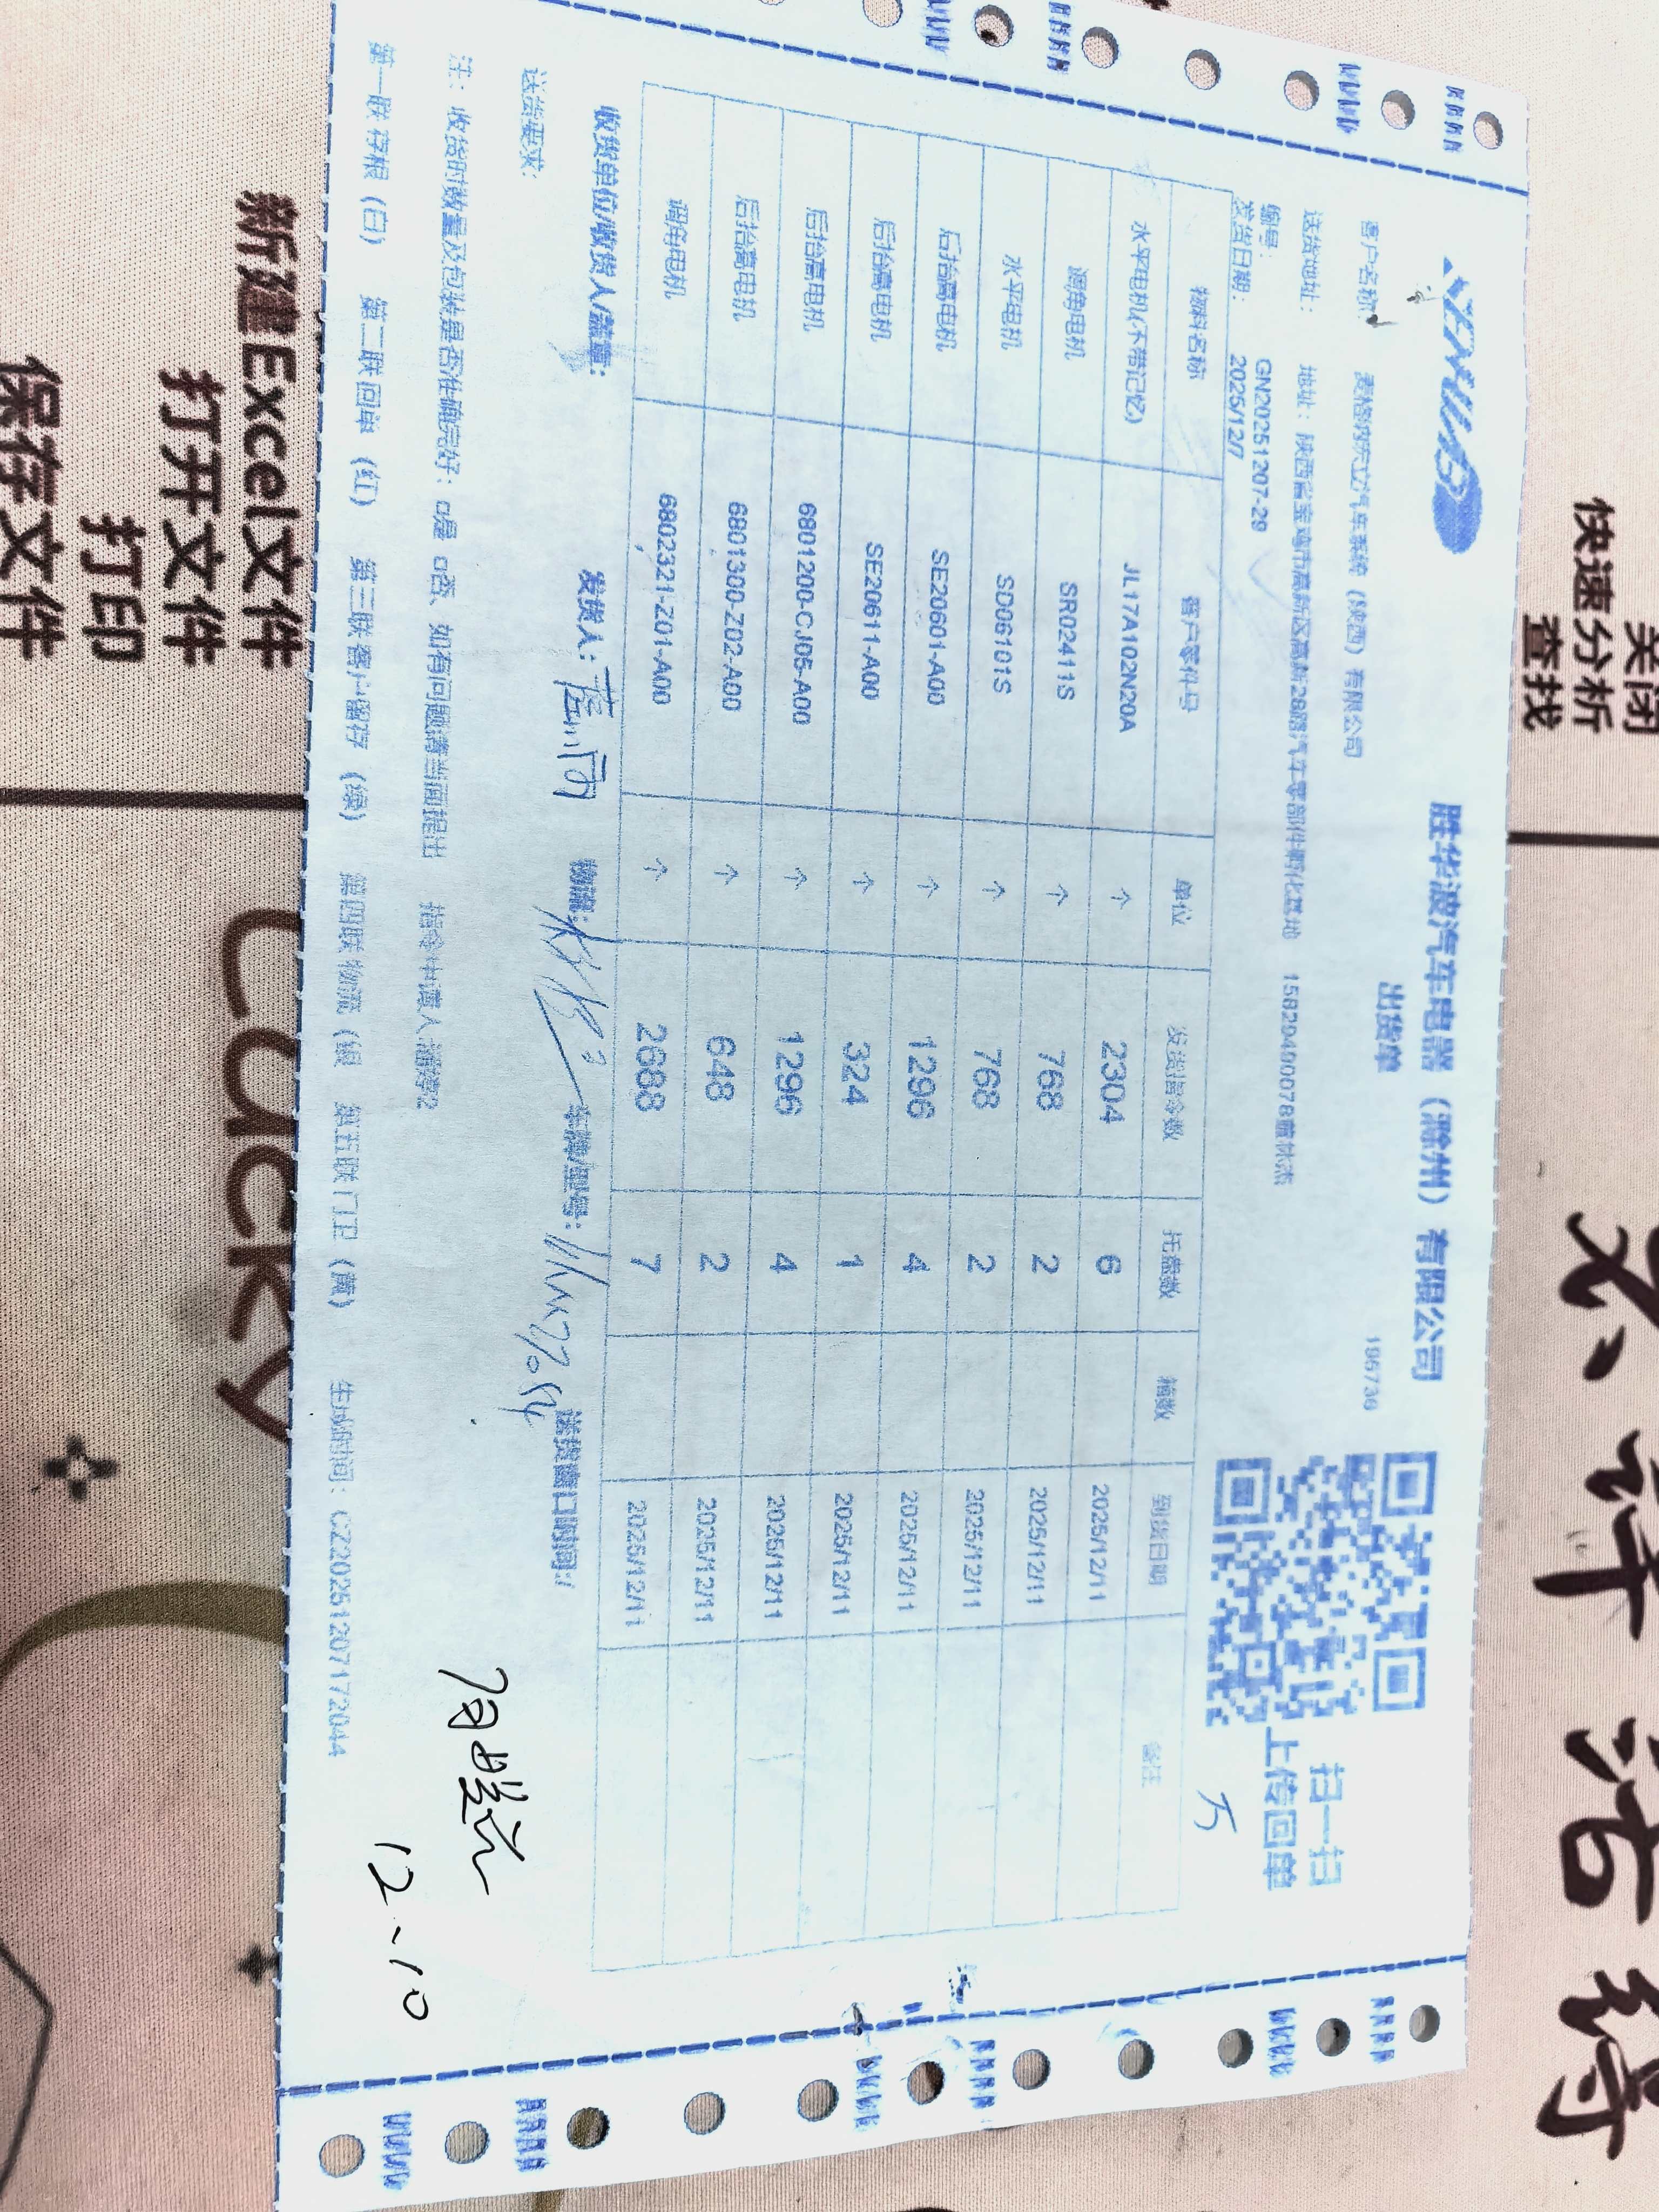 SHB
胜华波汽车电器（滁州）有限公司
出货单
196736
扫一扫
上传回单
客户名称：
麦格纳宏立汽车系统（陕西）有限公司
送货地址：
地址：陕西省宝鸡市高新区高新28路汽车零部件孵化基地 15829490078
编号：
GN20251207-29
发货日期：
2025/12/7
物料名称 客户零件号 单位 发货指令数 托盘数 箱数 到货日期 备注
水平电机(不带记忆) JL17A102N20A 个 2304 6 2025/12/11
调角电机 SR02411S 个 768 2 2025/12/11
水平电机 SD06101S 个 768 2 2025/12/11
后抬高电机 SE20601-A00 个 1296 4 2025/12/11
后抬高电机 SE20611-A00 个 324 1 2025/12/11
后抬高电机 6801200-CJ05-A00 个 1296 4 2025/12/11
后抬高电机 6801300-Z02-A00 个 648 2 2025/12/11
调角电机 6802321-Z01-A00 个 2688 7 2025/12/11
收货单位/收货人/盖章： 发货人： 物流： 车牌/型号： 送货窗口时间：/
送货要求：
注：收货时数量及包装是否准确完好：□是 □否、如有问题请当面提出 指令申请人
第一联 存根（白） 第二联 回单（红） 第三联 客户留存（绿） 第四联 物流（银 第五联 门卫（黄） 生成时间：CZ20251207172044
12-10
新建Excel文件
打开文件
打印
保存文件
关闭
快速分析
查找
Lucky